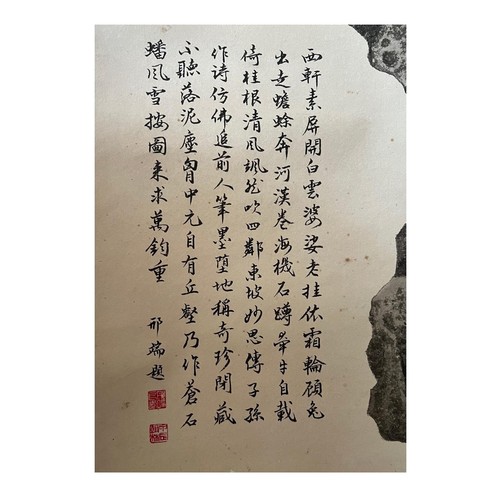 西軒素屏開白雲婆娑老桂依霜輪顧兔
出走蟾蜍奔河漢卷海機石蹲牽牛自載
倚桂根清風颯然吹四鄰東坡妙思傳子孫
作詩仿佛追前人筆墨墮地稱奇珍閉藏
不聽落泥塵胷中元自有丘壑乃作蒼石
蟠風雪按圖來求萬鈞重
邢瑞題